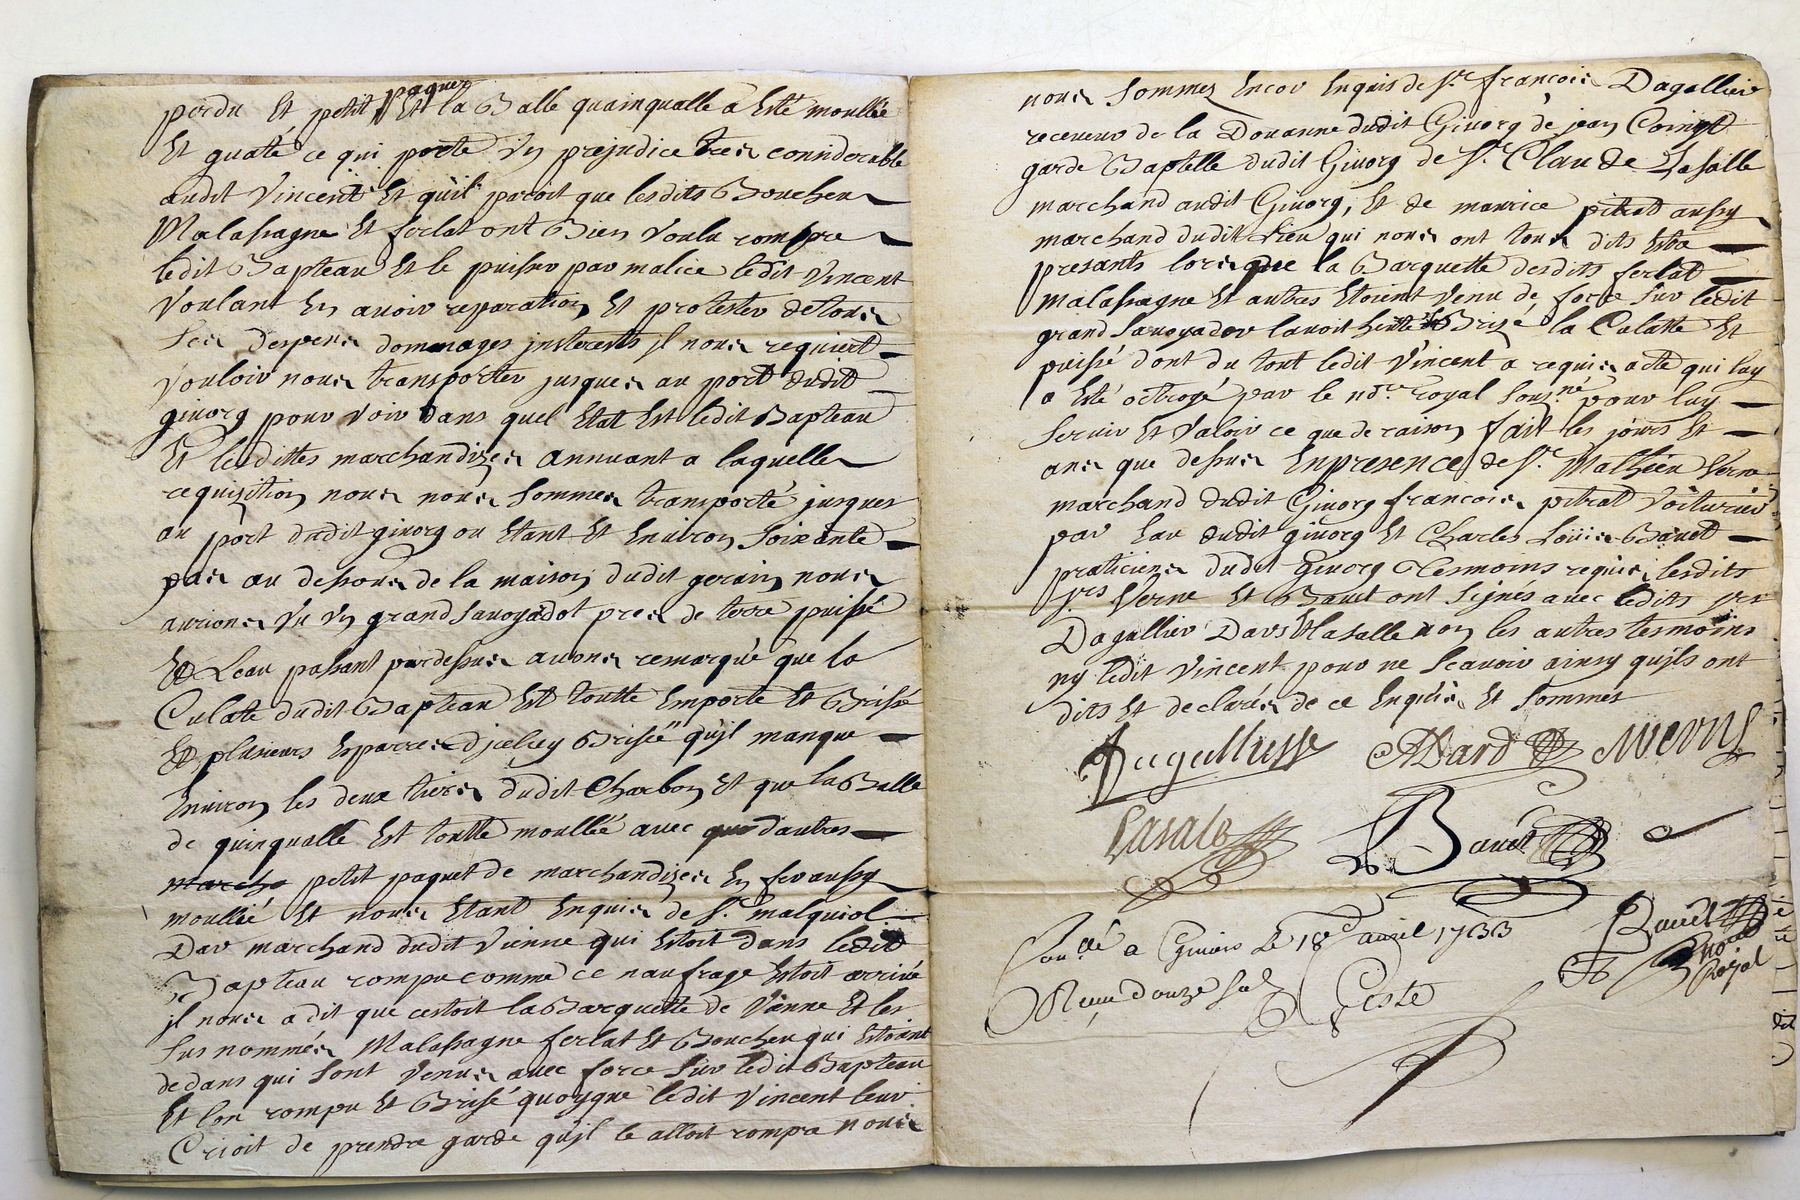 perdu Et petit paquet Et la Balle quainqualle a Esté moullée
Et guaté ce qui porte Un prejudice tres considerable
audit Vincent Et quil paroit que lesdits Boucheu
Malassagne Et ferlat ont Bien voulu rompre
ledit Bapteau Et le puiser par malice ledit Vincent
Voulant En avoir reparation Et protester de tous
Ses despens dommages jnterests jl nous requiert
Vouloir nous transporter jusques au port dudit
givorg pour Voir dans quel Etat Est ledit Bapteau
Et lesdittes marchandizes annuant a laquelle
requisition nous nous sommes transporté jusques
au port dudit givorg ou Etant Et Environ soixante
pas au dessous de la maison dudit gerain nous
aurions Vu Un grand Savoyadot pres de terre puissé
Et Leau passant pardessus avons remarqué que la
Culate dudit Bapteau Est toutte Emporté Et Brisé
Et plusieurs Esparres djceluy Brisée qujl manque
Environ les deux tiers dudit Charbon Et que la Balle
de quinqualle Est toutte moullée avec dautres
marcha petit paquet de marchandizes En fer aussy
moullié Et nous Etant Enquis de Sr. malquiol
Dav marchand dudit Vienne qui Estoit dans ledit
Bapteau rompu comme ce naufrage Estoit arrivé
jl nous a dit que cestoit la Barquette de Vienne Et les
Susnommés Malassagne ferlat Et Boucheu qui Estoint
dedans qui sont Venus avec force sur ledit Bapteau
Et lon rompu Et Brisé quoyque ledit Vincent leur
Crioit de prendre garde qujl le alloit rompre nous
nous sommes Encor Enquis de Sr. francois Dagallier
receveur de la Douanne dudit Givorg de jean Coingt
garde Baptelle dudit Givorg de Sr. Claude Lasalle
marchand audit Givorg, Et de maurice pitrat aussy
marchand dudit Lieu qui nous ont tous dits Estre
presants lorsque la Barquette desdits ferlat
malassagne Et autres Etoient Venu de force sur ledit
grand Savoyador lavoit Brizé la Culatte Et
puissé dont du tout ledit Vincent a requis acte qui luy
a Esté octroyé par le nore. royal sousné. pour luy
Servir Et Valoir ce que de raison fait les jours Et
ans que dessus Enpresence de Sr. Mathieu Verne
marchand dudit Givorg francois pitrat Voiturier
par Eau dudit givorg Et Charles Louis Bauet
praticiens dudit Givorg tesmoins requis lesdits
srs Verne Et Bauet ont signés avec ledits srs
Dagallier Dav Et Lasalle non les autres tesmoins
ny ledit Vincent pour ne scavoir ainsy quils ont
dits Et declarés de ce Enquis Et sommés
Dagallier MVerne
Lasale Bauet
Conllé a Givors Le 18e avril 1733
Bauet
Nore
Royal
Reçu douze sols
Geste